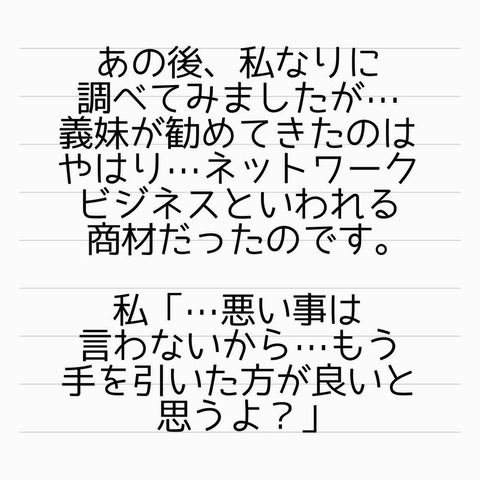 あの後、私なりに
調べてみましたが…
義妹が勧めてきたのは
やはり…ネットワーク
ビジネスといわれる
商材だったのです。
私「…悪い事は
言わないから…もう
手を引いた方が良いと
思うよ？」